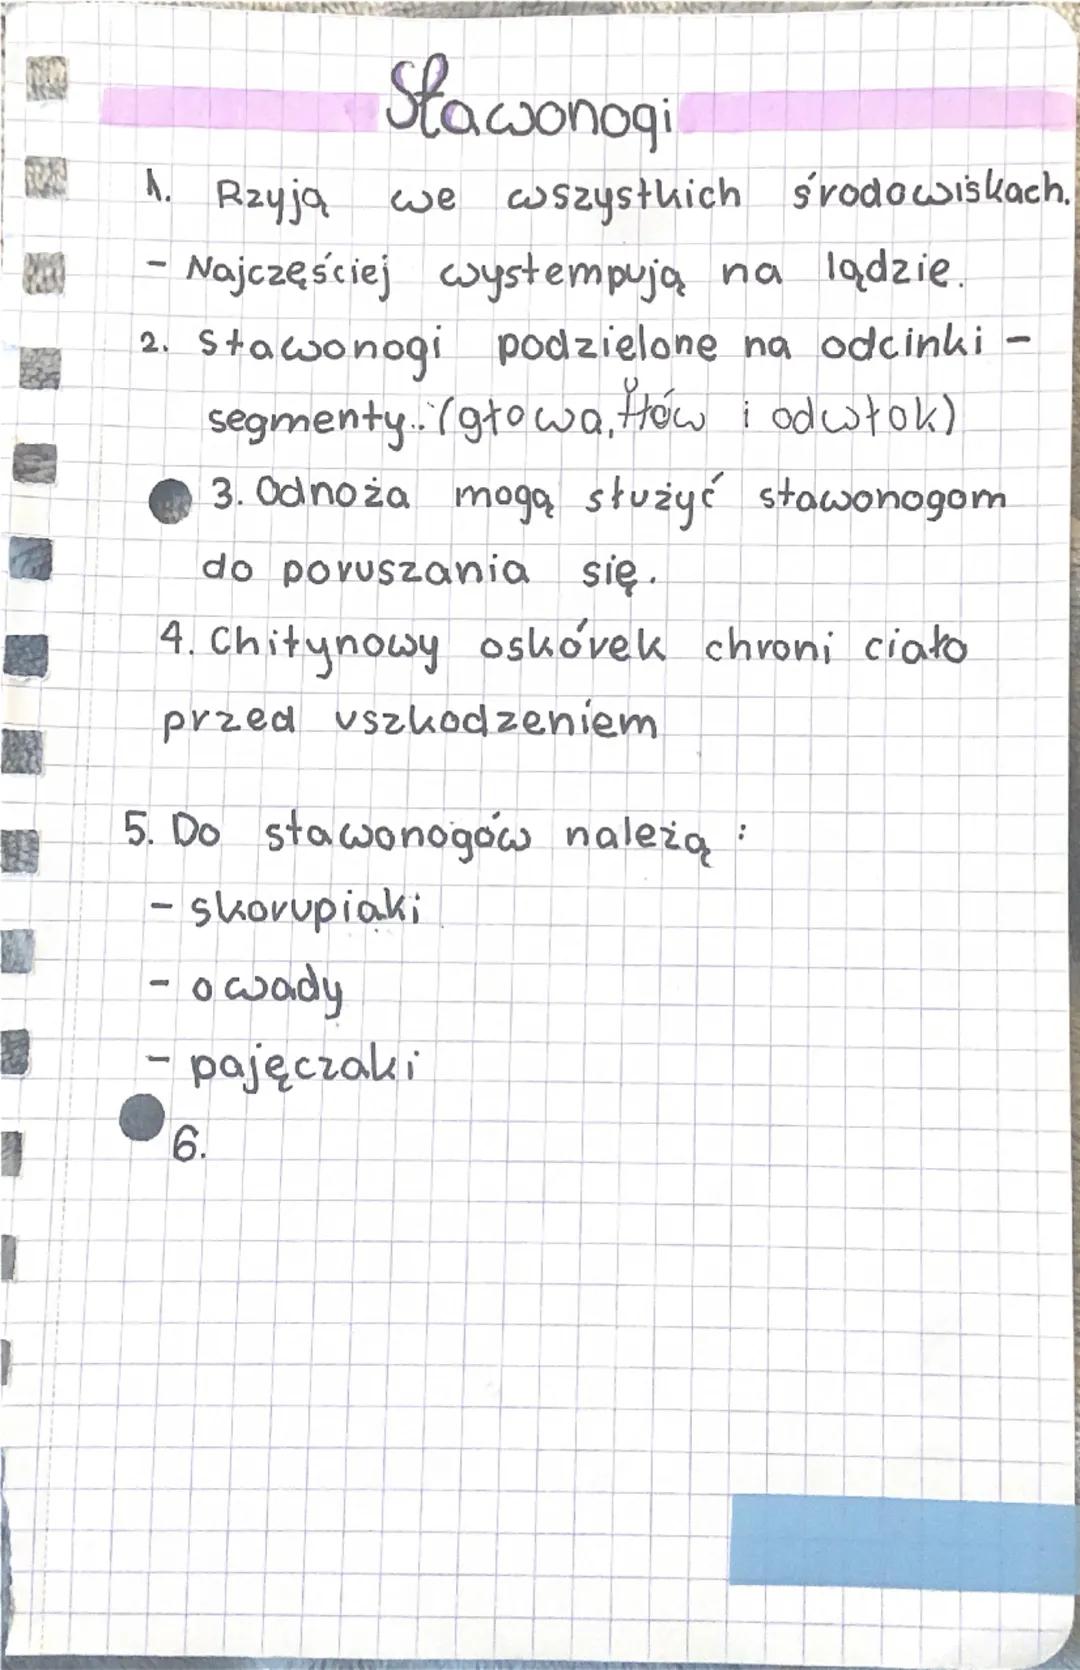 Stawonogi
1. Rzyją we wszystkich środowiskach.
- Najczęściej wystempują na lądzie.
2. Stawonogi podzielone na odcinki -
segmenty.:(głowa, tłów i odwłok)
3. Odnoża mogą służyć stawonogom
do poruszania się.
4. Chitynowy oskórek chroni ciało
przed uszkodzeniem
5. Do stawonogów należą :
- skorupiaki
- owady
- pajęczaki
6.